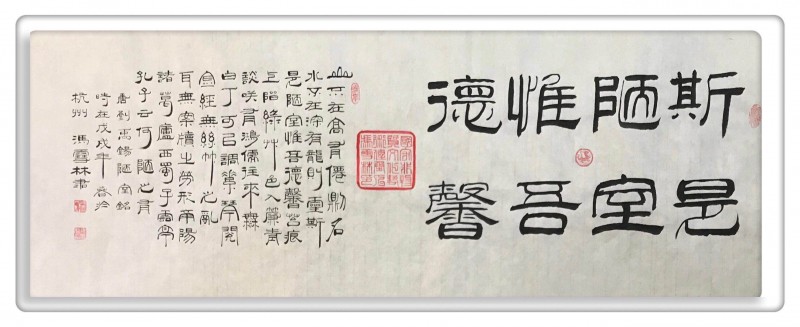 斯是
陋室
惟吾
德馨
山不在高有僊則名
水不在深有龍則靈斯
是陋室惟吾德馨苔痕
上階綠艸色入簾青
談笑有鴻儒往來無
白丁可㠯調素琴閱
金經無絲竹之亂
耳無案牘之勞形南陽
諸葛廬西蜀子雲亭
孔子云何陋之有
唐劉禹錫陋室銘
時在戊戌年春於
杭州 馮雪林書